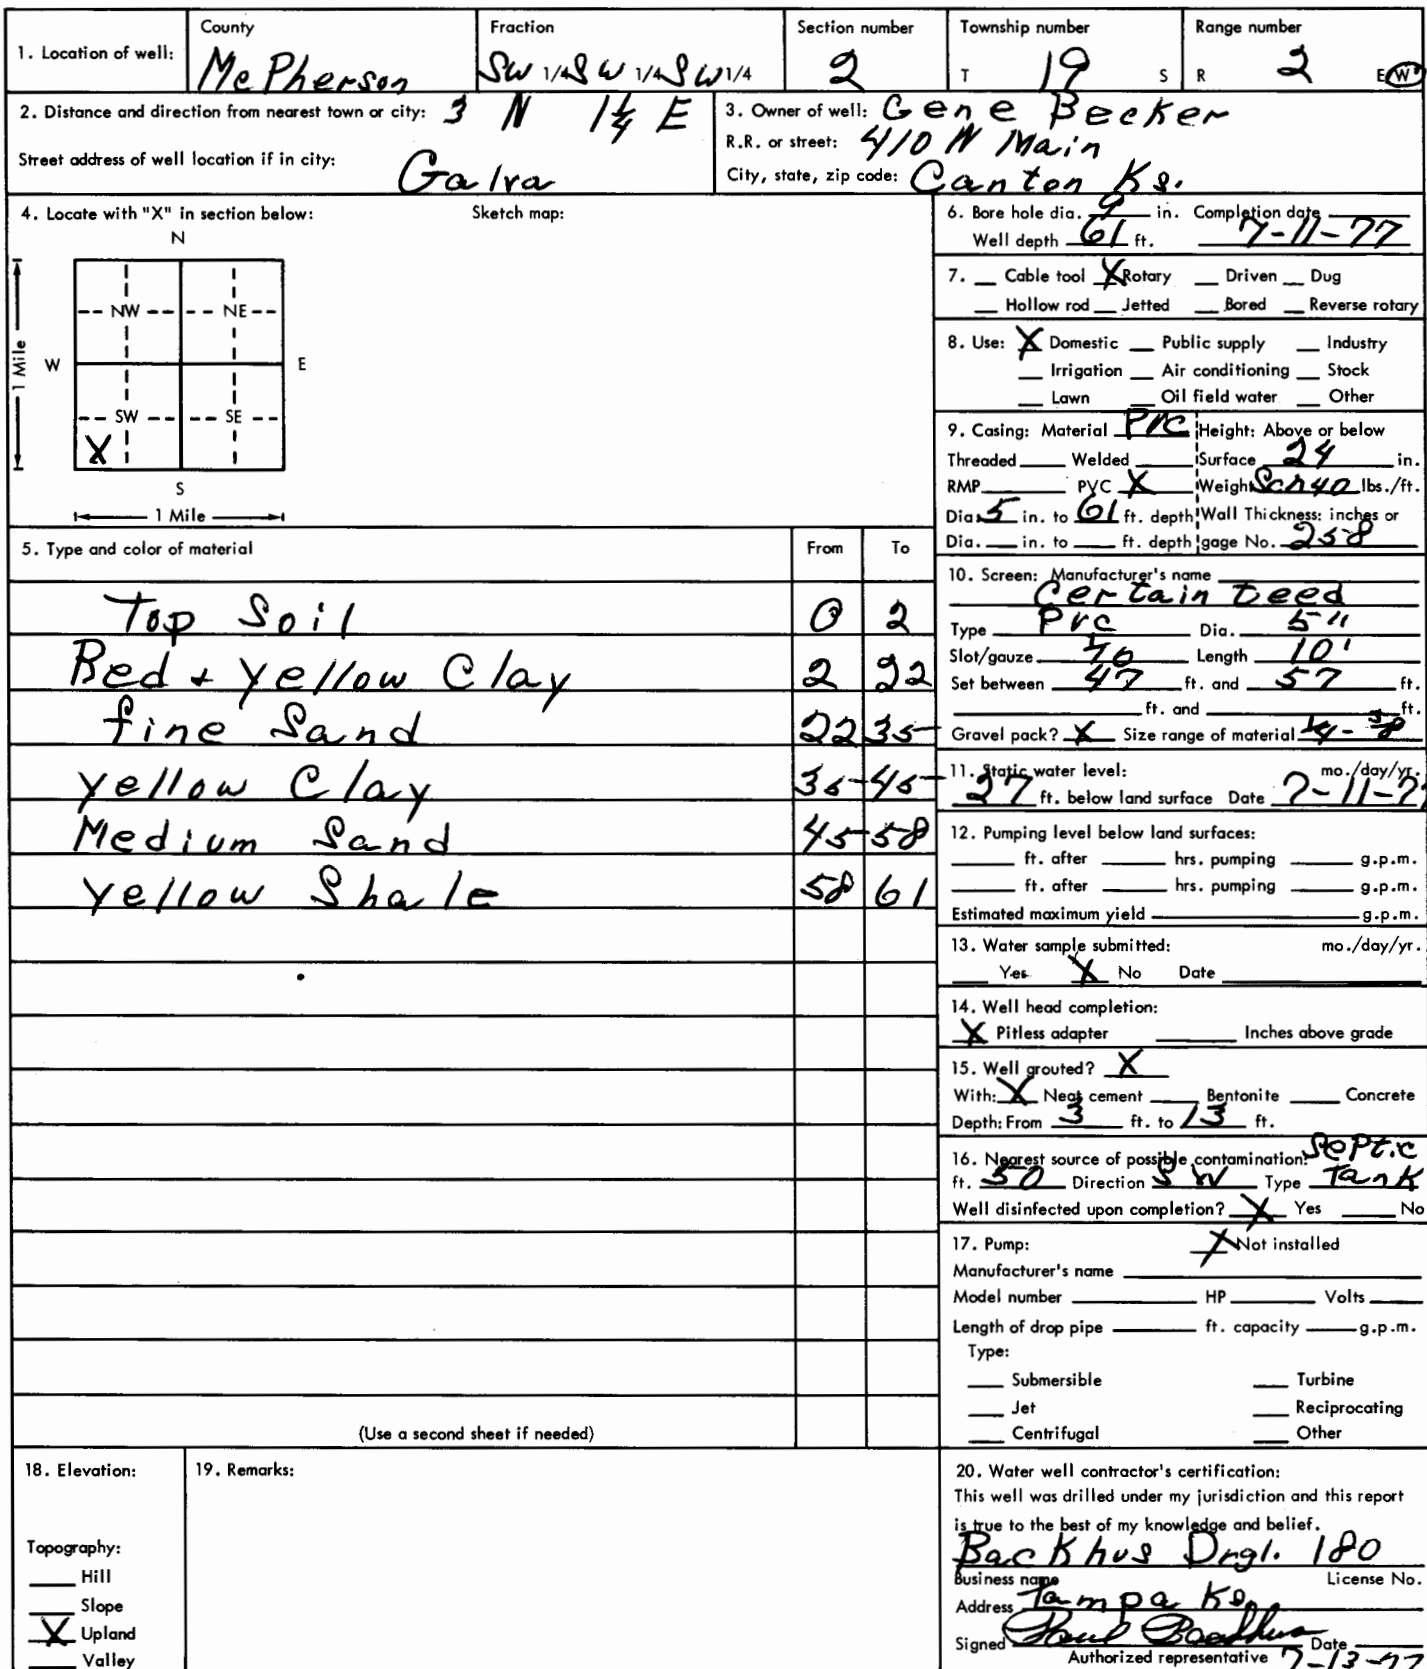 1. Location of well: County McPherson Fraction SW 1/4 SW 1/4 SW 1/4 Section number 2 Township number T 19 S Range number R 2 E W
2. Distance and direction from nearest town or city: 3 N 1 1/4 E
Street address of well location if in city: Galva
3. Owner of well: Gene Becker
R.R. or street: 410 N Main
City, state, zip code: Canton Ks.
4. Locate with "X" in section below: Sketch map:
N
NW NE
W E
1 Mile
SW SE
X
S
1 Mile
5. Type and color of material From To
Top Soil 0 2
Red + yellow Clay 2 22
fine Sand 22 35
yellow Clay 35 45
Medium Sand 45 58
yellow Shale 58 61
(Use a second sheet if needed)
6. Bore hole dia. 9 in. Completion date
Well depth 61 ft. 7-11-77
7. Cable tool X Rotary Driven Dug
Hollow rod Jetted Bored Reverse rotary
8. Use: X Domestic Public supply Industry
Irrigation Air conditioning Stock
Lawn Oil field water Other
9. Casing: Material PVC Height: Above or below
Threaded Welded Surface 24 in.
RMP PVC X Weight Sch40 lbs./ft.
Dia. 5 in. to 61 ft. depth Wall Thickness: inches or
Dia. in. to ft. depth gage No. 258
10. Screen: Manufacturer's name
Certain teed
Type PVC Dia. 5"
Slot/gauze 40 Length 10'
Set between 47 ft. and 57 ft.
ft. and ft.
Gravel pack? X Size range of material 1/4 - 3/8
11. Static water level: mo./day/yr.
27 ft. below land surface Date 7-11-77
12. Pumping level below land surfaces:
ft. after hrs. pumping g.p.m.
ft. after hrs. pumping g.p.m.
Estimated maximum yield g.p.m.
13. Water sample submitted: mo./day/yr.
Yes X No Date
14. Well head completion:
X Pitless adapter Inches above grade
15. Well grouted? X
With: X Neat cement Bentonite Concrete
Depth: From 3 ft. to 13 ft.
16. Nearest source of possible contamination: Septic
ft. 50 Direction SW Type Tank
Well disinfected upon completion? X Yes No
17. Pump: X Not installed
Manufacturer's name
Model number HP Volts
Length of drop pipe ft. capacity g.p.m.
Type:
Submersible Turbine
Jet Reciprocating
Centrifugal Other
18. Elevation:
Topography:
Hill
Slope
X Upland
Valley
19. Remarks:
20. Water well contractor's certification:
This well was drilled under my jurisdiction and this report
is true to the best of my knowledge and belief.
Backhus Drgl. 180
Business name License No.
Address Tampa Ks.
Signed Paul Backhus Date
Authorized representative 7-13-77